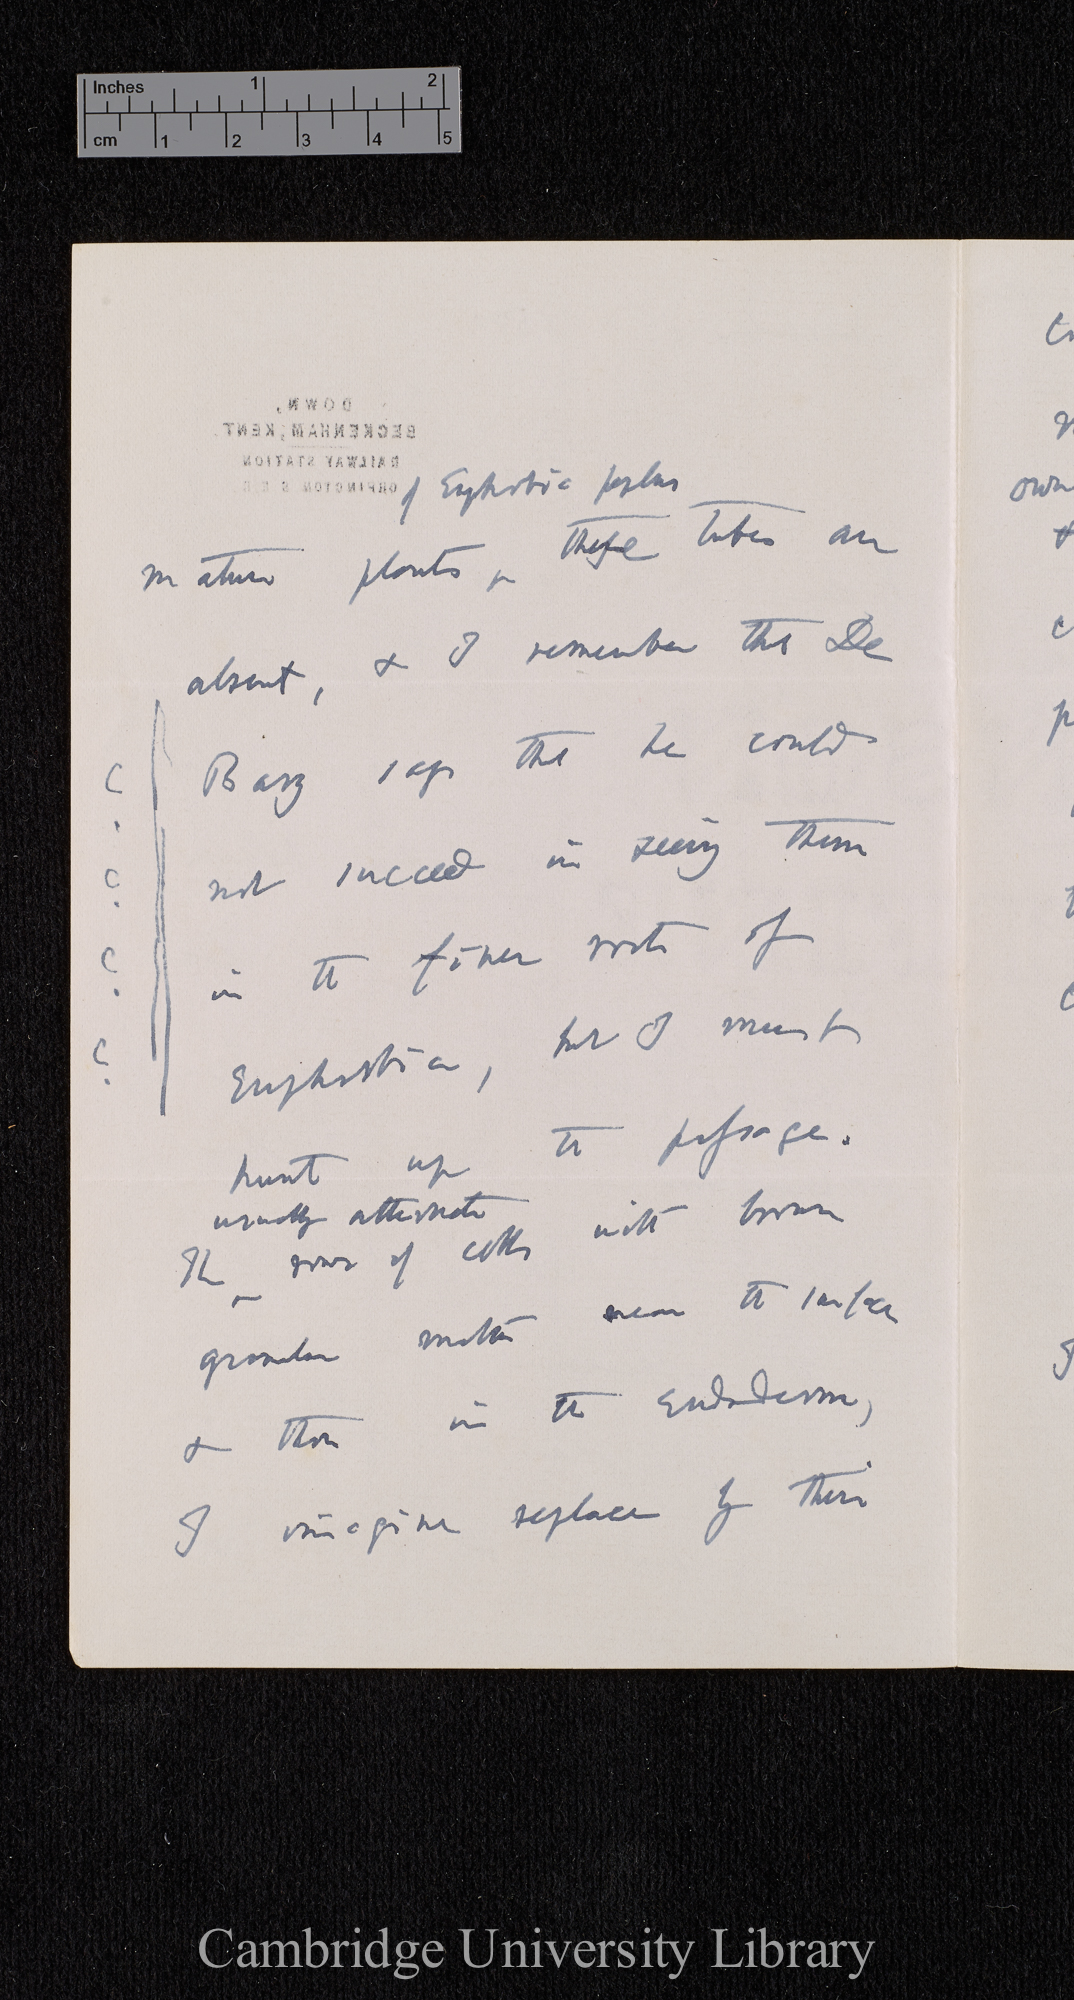 Inches 1 2
cm 1 2 3 4 5
DOWN,
BECKENHAM, KENT.
RAILWAY STATION
ORPINGTON S.E.R.
of Euphorbia peplus
mature plants, these tubes are
absent, & I remember that De
Bary says that he could
not succeed in seeing them
in the finer roots of
Euphorbia, but I must
hunt up the passage.
usually alternate
The rows of cells with brown
granular matter near the surface
& those in the Endoderm,
I imagine replace by their
C.
C.
C.
C.
own
Cambridge University Library